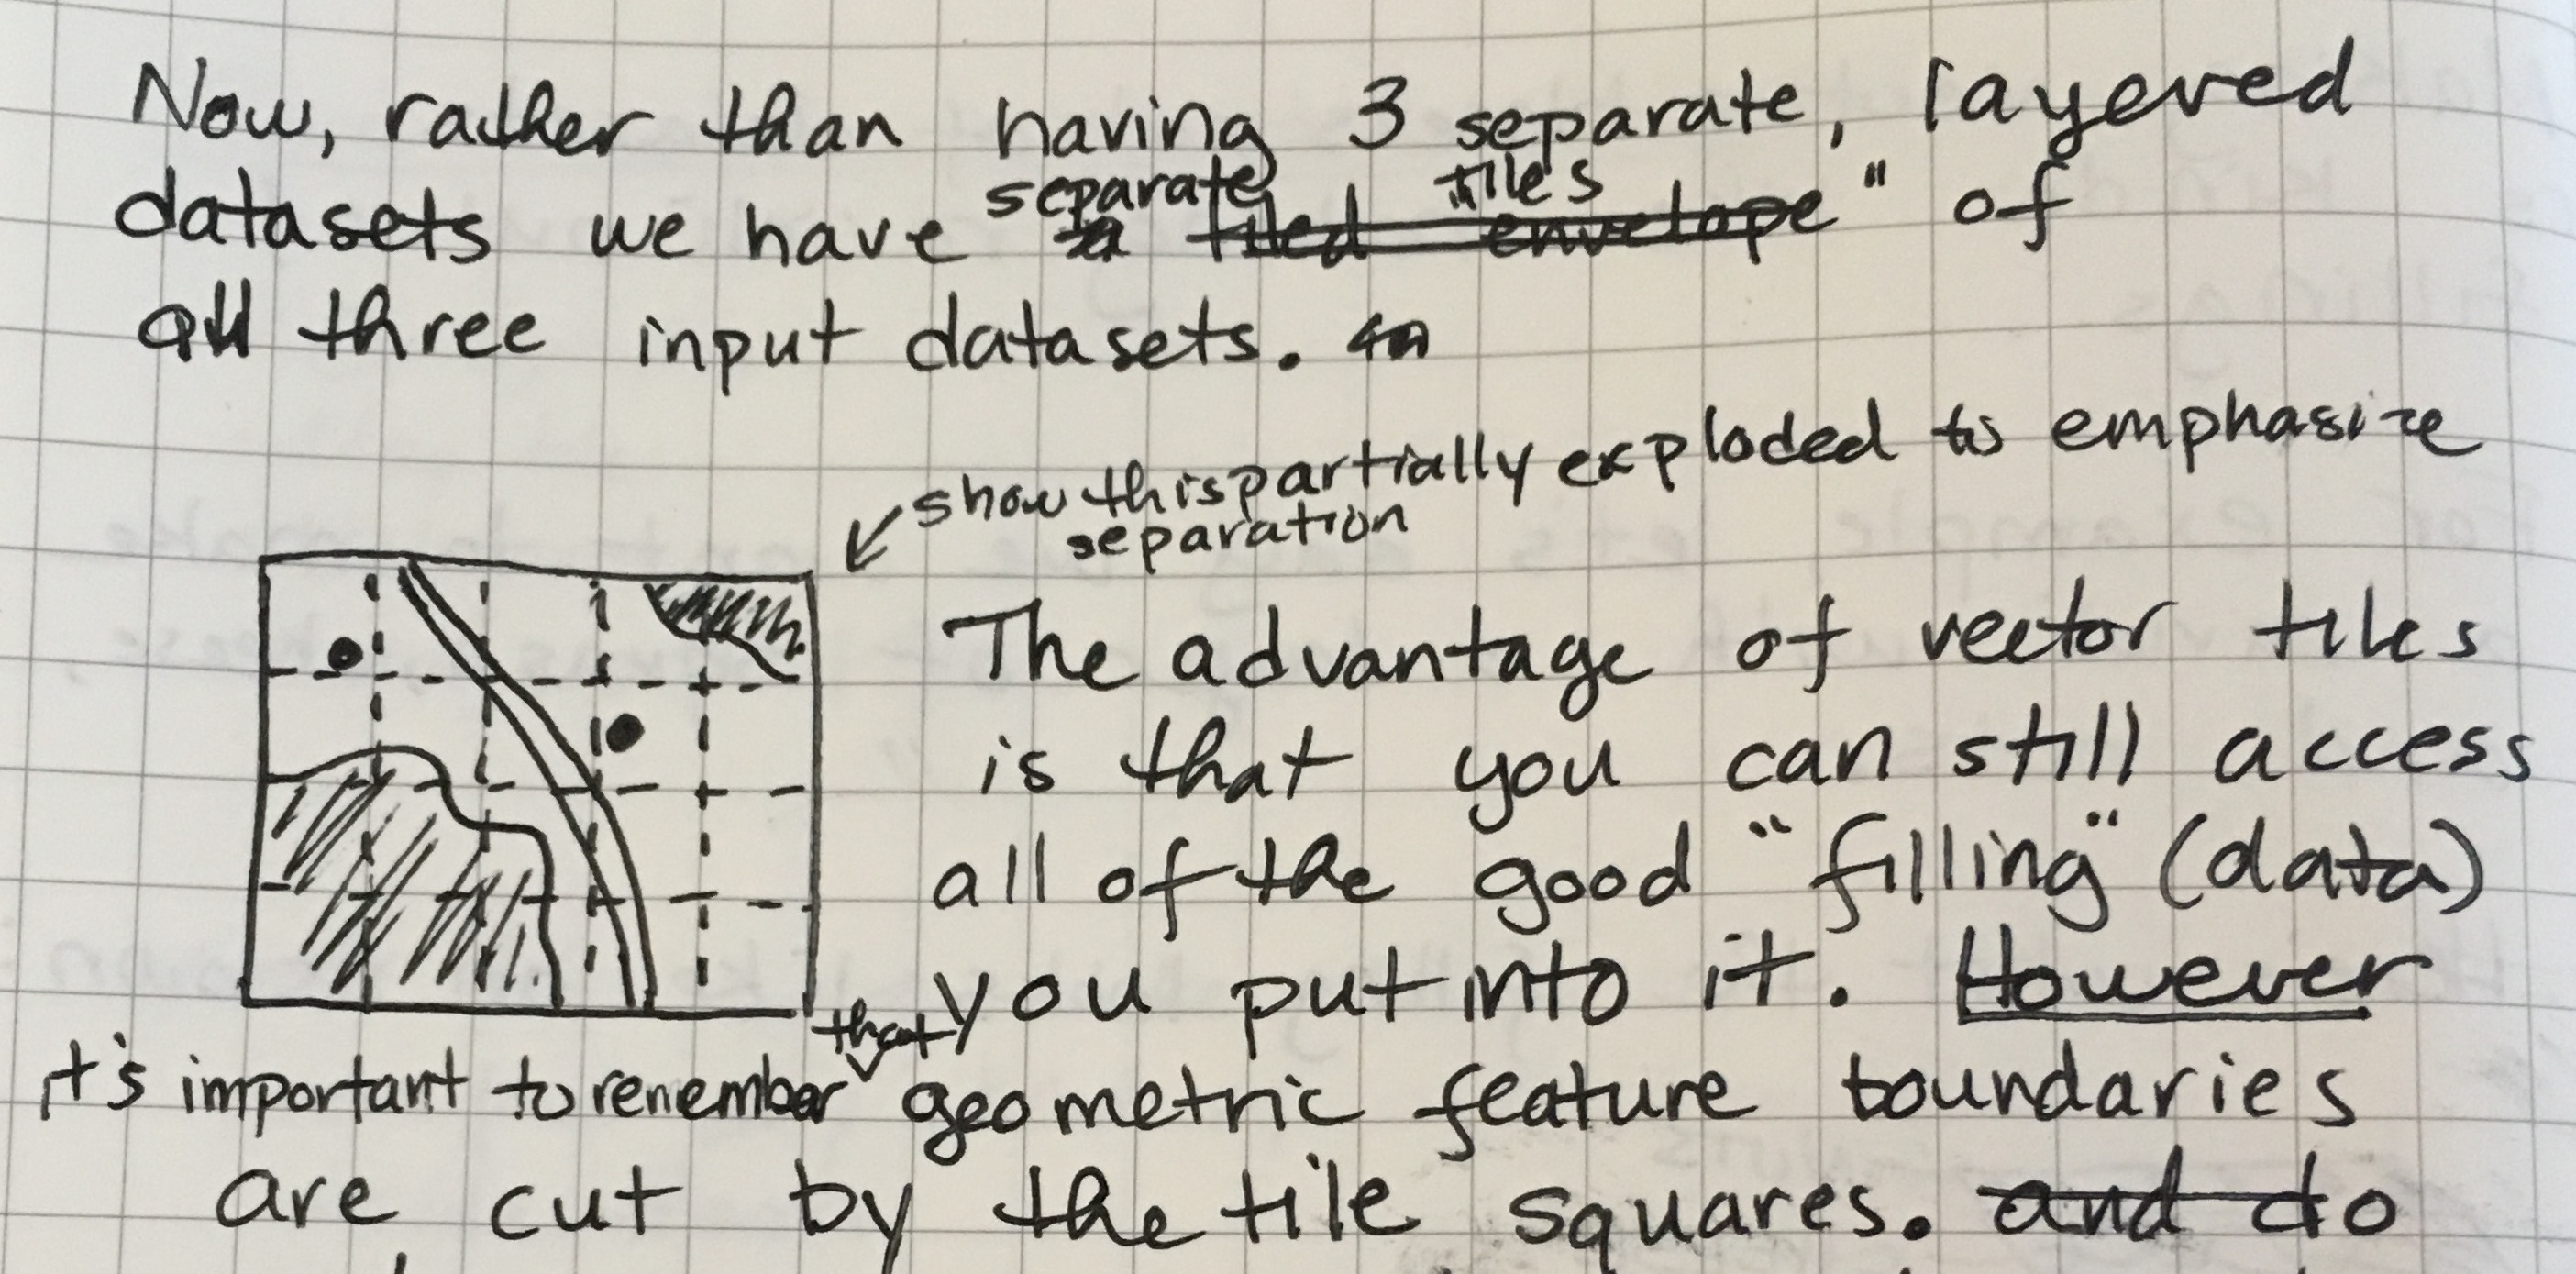 Now, rather than having 3 separate, layered
separate tiles
datasets we have a tiled envelope" of
all three input datasets.
show this partially exploded to emphasize
separation
The advantage of vector tiles
is that you can still access
all of the good "filling" (data)
you put into it. However
that
it's important to remember geometric feature boundaries
are cut by the tile squares. and do